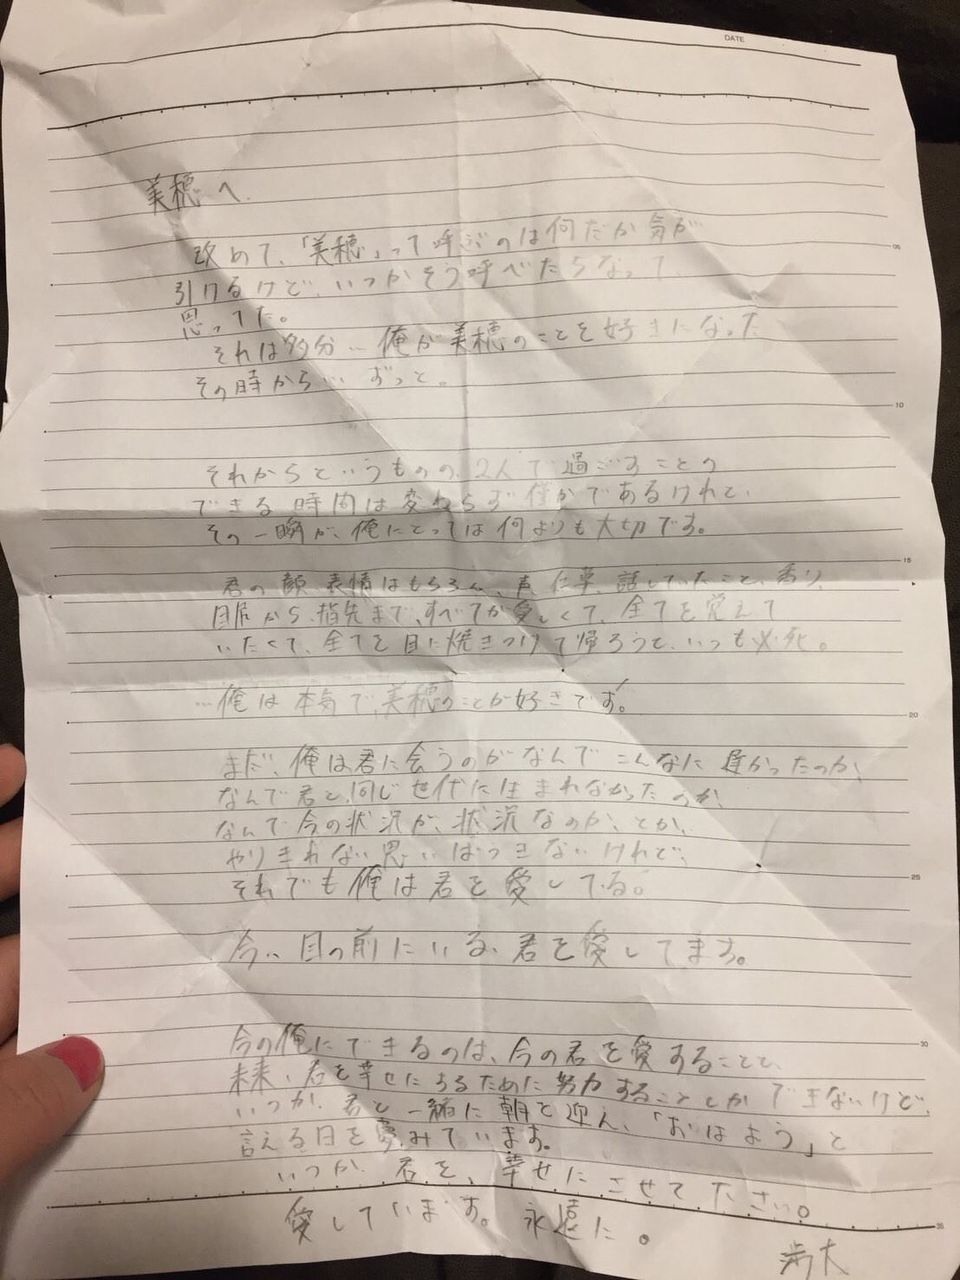 DATE
美穂へ
改めて、「美穂」って呼ぶのは何だか気が
引けるけど、いつかそう呼べたらなって、
思ってた。
それは多分… 俺が美穂のことを好きになった
その時から… ずっと。
それからというものの、2人で過ごすことの
できる時間は変わらず僅かであるけれど、
その一瞬が、俺にとっては何よりも大切です。
君の顔、表情はもちろん、声、仁草、話していたこと、香り、
目尻から、指先まで、すべてが愛しくて、全てを覚えて
いたくて、全てを目に焼きつけて帰ろうと、いつも必死。
…俺は本気で、美穂のことが好きです。
まだ、俺は君に会うのがなんでこんなに遅かったのか、
なんで君と、同じ世代に生まれなかったのか、
なんで今の状況が、状況なのか、とか、
やりきれない思いばっきないけれど、
それでも俺は君を愛してる。
今、目の前にいる、君を愛してます。
今の俺にできるのは、今の君を愛することと、
未来、君を幸せにするために努力することしかできないけど、
いつか、君と一緒に朝を迎え、「おはよう」と
言える日を夢みています。
いつか、君を、幸せにさせてください。
愛しています。永遠に。
05
10
15
20
25
30
35